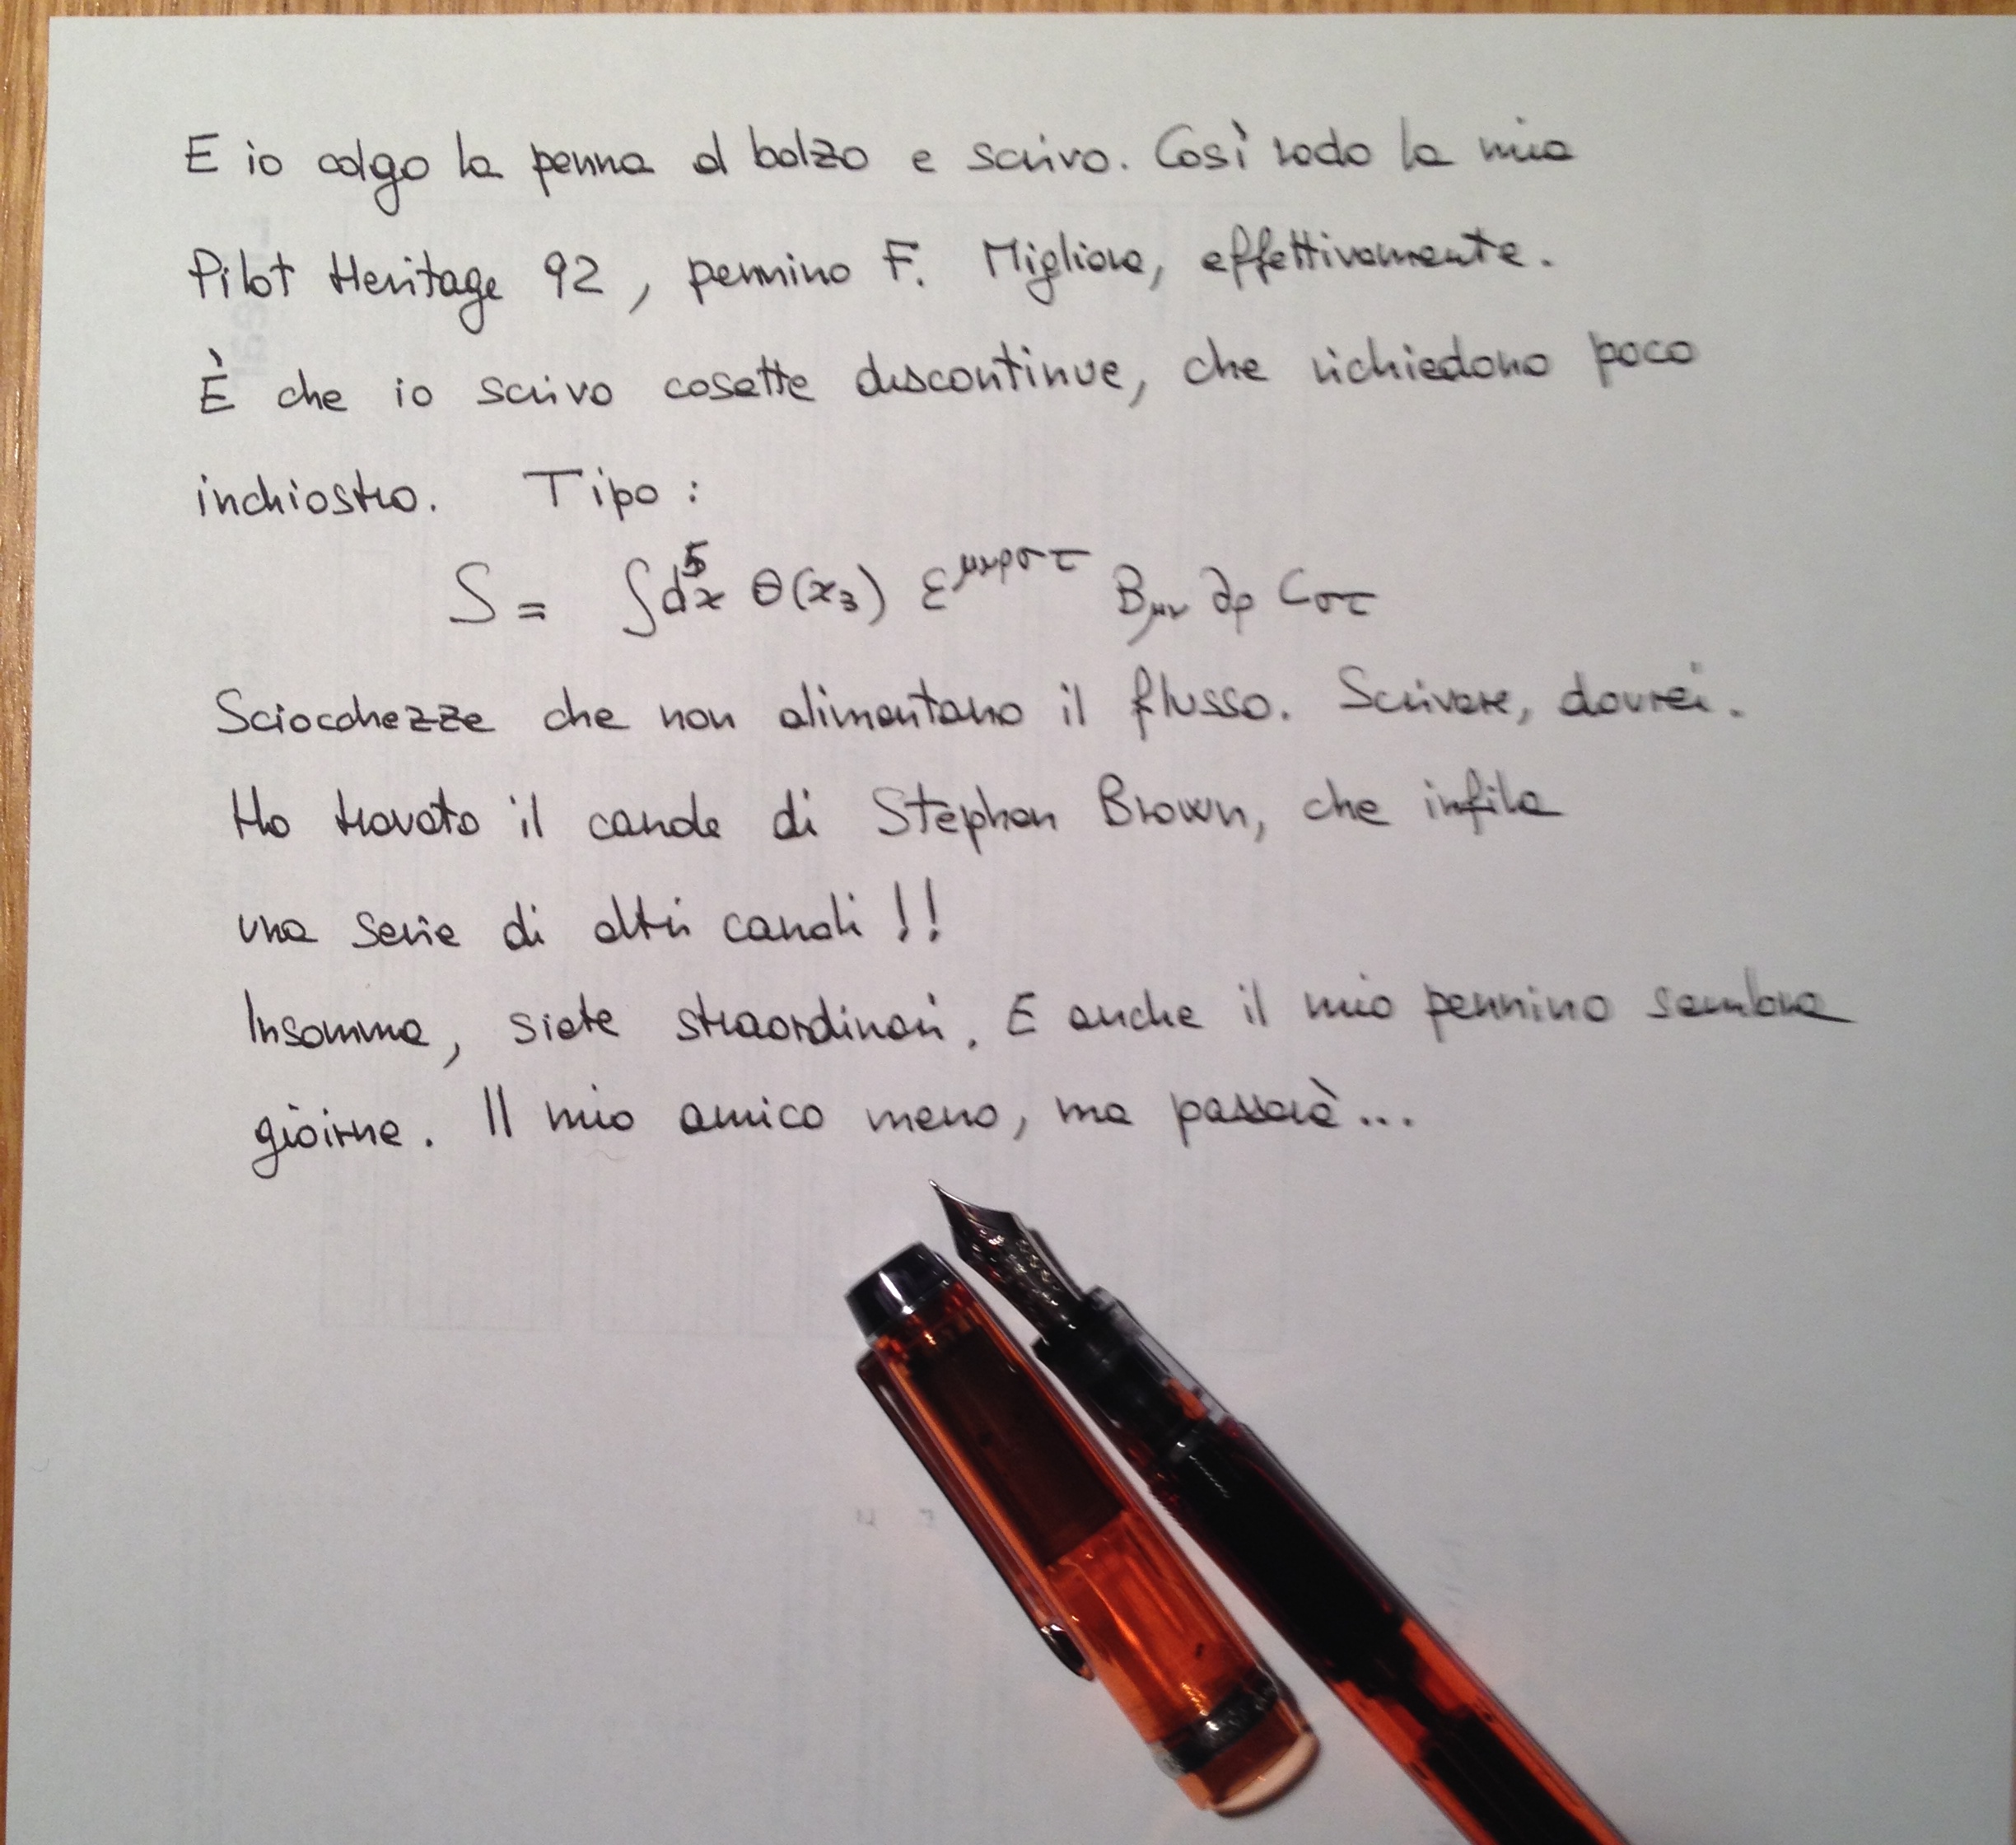 E io colgo la penna al balzo e scrivo. Così rodo la mia
Pilot Heritage 92, pennino F. Migliora, effettivamente.
È che io scrivo cosette discontinue, che richiedono poco
inchiostro. Tipo:
S = ∫d⁵x θ(x₃) ε^μνρστ B_μν ∂ρ C_στ
Sciocchezze che non alimentano il flusso. Scrivere, dovrei.
Ho trovato il canale di Stephen Brown, che infila
una serie di altri canali!!
Insomma, siete straordinari. E anche il mio pennino sembra
gioirne. Il mio amico meno, ma passerà...